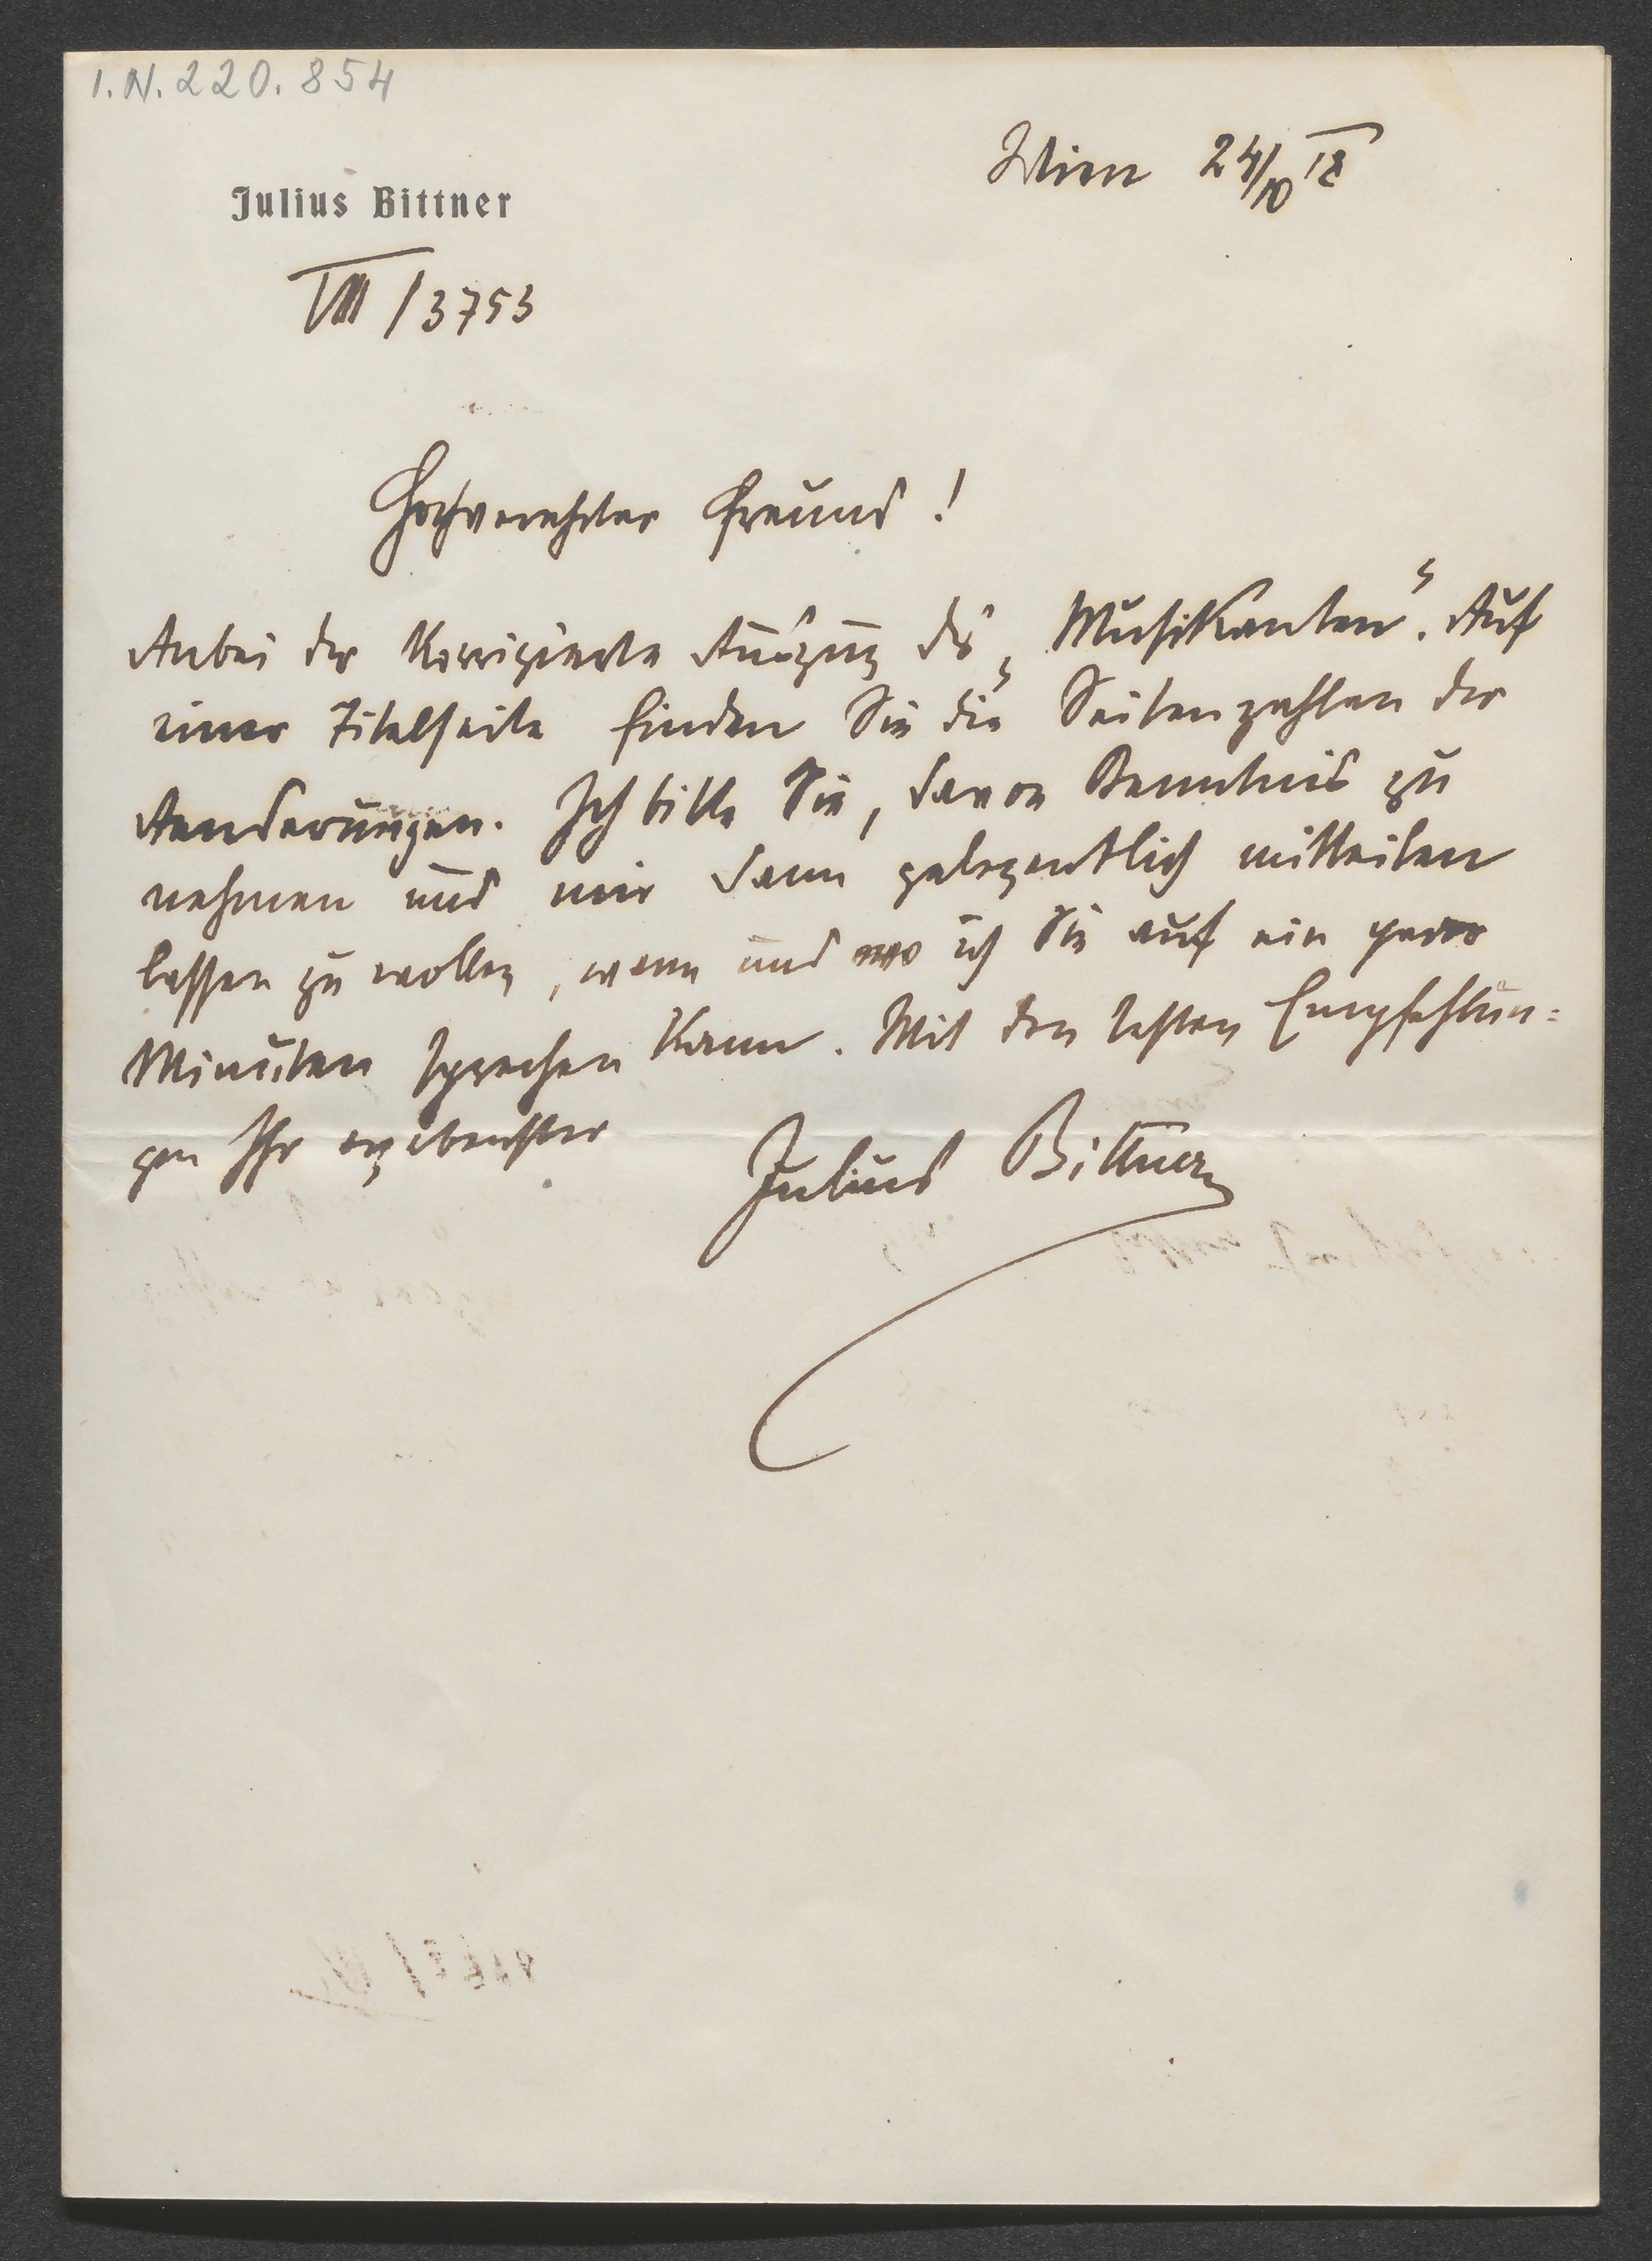 I.N. 220.854
Wien 24/10 18
Julius Bittner
VIII / 3753
Hochverehrter Freund!
Anbei der Korrigierte Auszug des „Musikanten“. Auf
einer Titelseite finden Sie die Seitenzahlen der
Aenderungen. Ich bitte Sie, davon Kenntnis zu
nehmen und mir dann gelegentlich mitteilen
lassen zu wollen, wann und wo ich Sie auf ein paar
Minuten sprechen kann. Mit den besten Empfehlun=
gen Ihr ergebenster
Julius Bittner